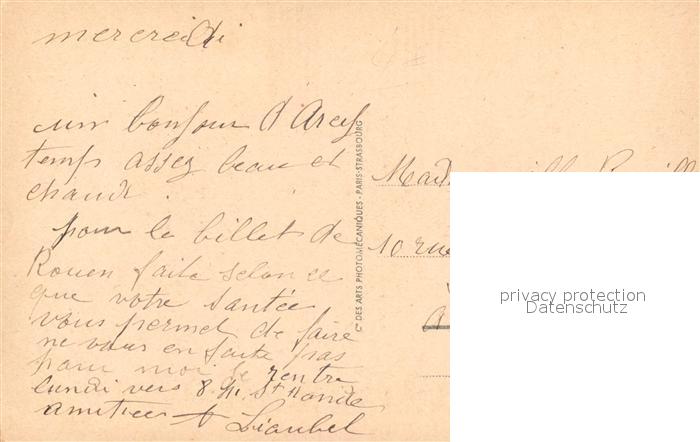 mercredi
un bonjour d'Arcy
temps assez beau et
chaud.
pour le billet de
Rouen faite selon ce
que votre santée
vous permet de faire
ne vous en faite pas
pour moi je rentre
lundi vers 8.H.
amitiées
Cie DES ARTS PHOTOMÉCANIQUES - PARIS-STRASBOURG
10 rue
privacy protection
Datenschutz